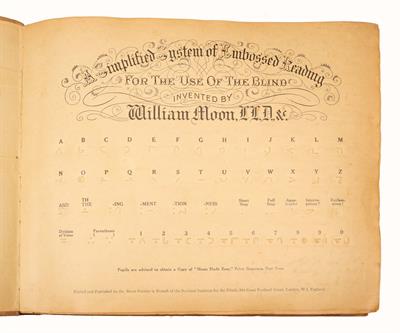 A Simplified System of Embossed Reading
FOR THE USE OF THE BLIND
INVENTED BY
William Moon, LL.D., &c
A B C D E F G H I J K L M
N O P Q R S T U V W X Y Z
AND TH THE -ING -MENT -TION -NESS Short Stop Full Stop Apostrophe Interrogation ? Exclamation !
Division of Verse Parenthesis ( ) 1 2 3 4 5 6 7 8 9 0
Pupils are advised to obtain a Copy of "Moon Made Easy,"
Printed and Published by the Moon Society (a Branch of the National Institute for the Blind), 224 Great Portland Street, London, W.1, England